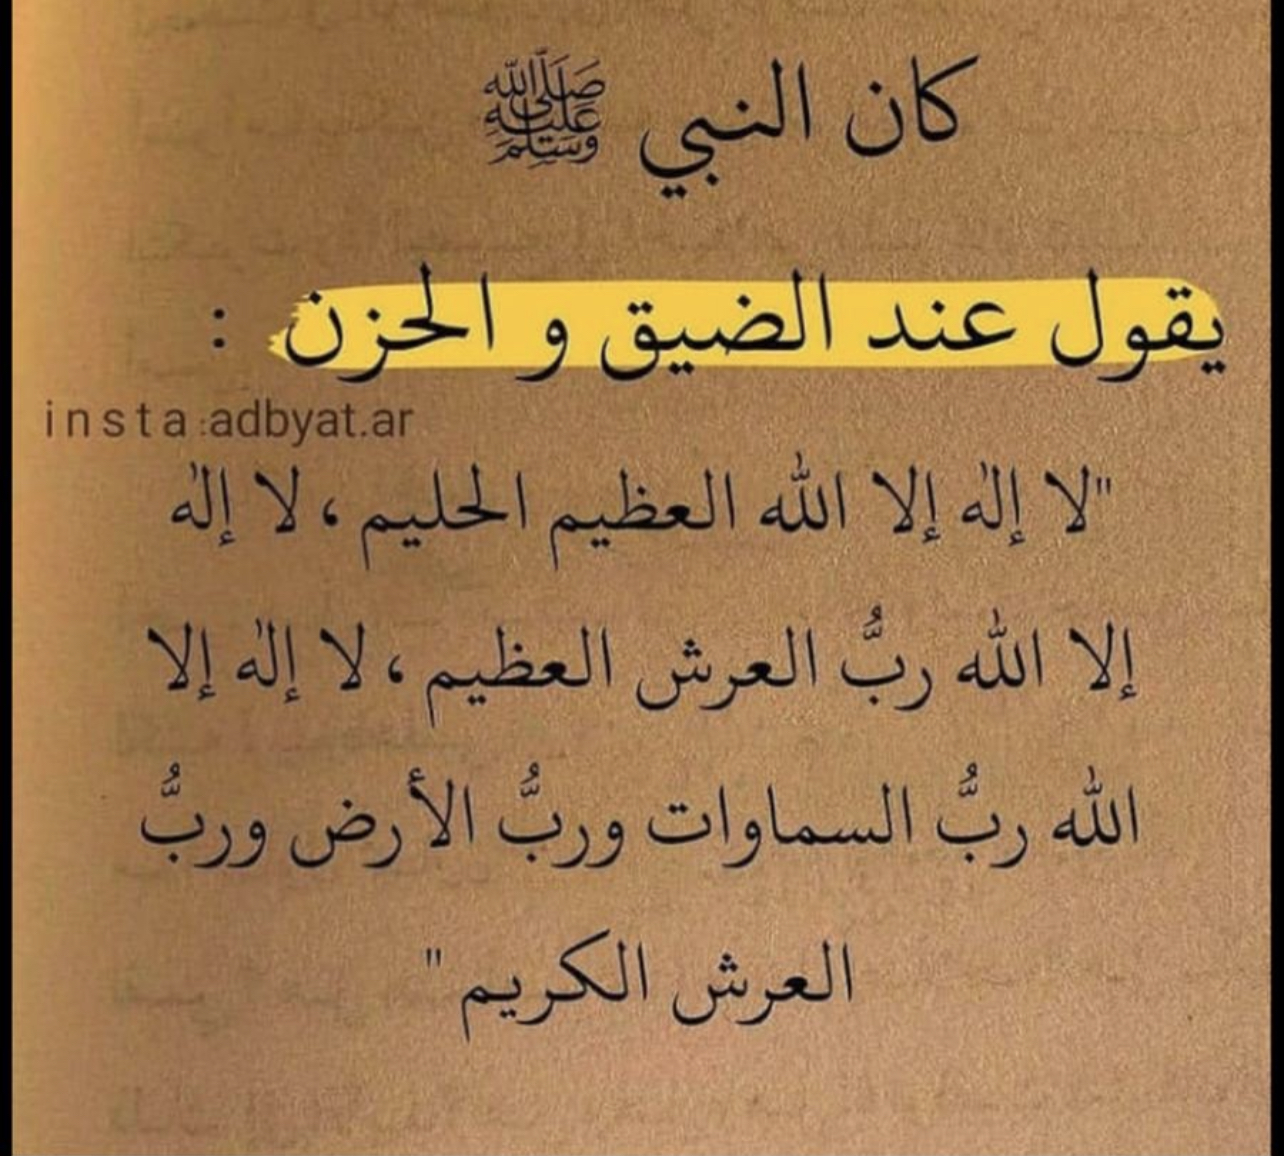 كان النبي ﷺ
يقول عند الضيق و الحزن :
insta:adbyat.ar
"لا إلٰه إلا الله العظيم الحليم، لا إلٰه
إلا الله ربُّ العرش العظيم، لا إلٰه إلا
الله ربُّ السماوات وربُّ الأرض وربُّ
العرش الكريم"